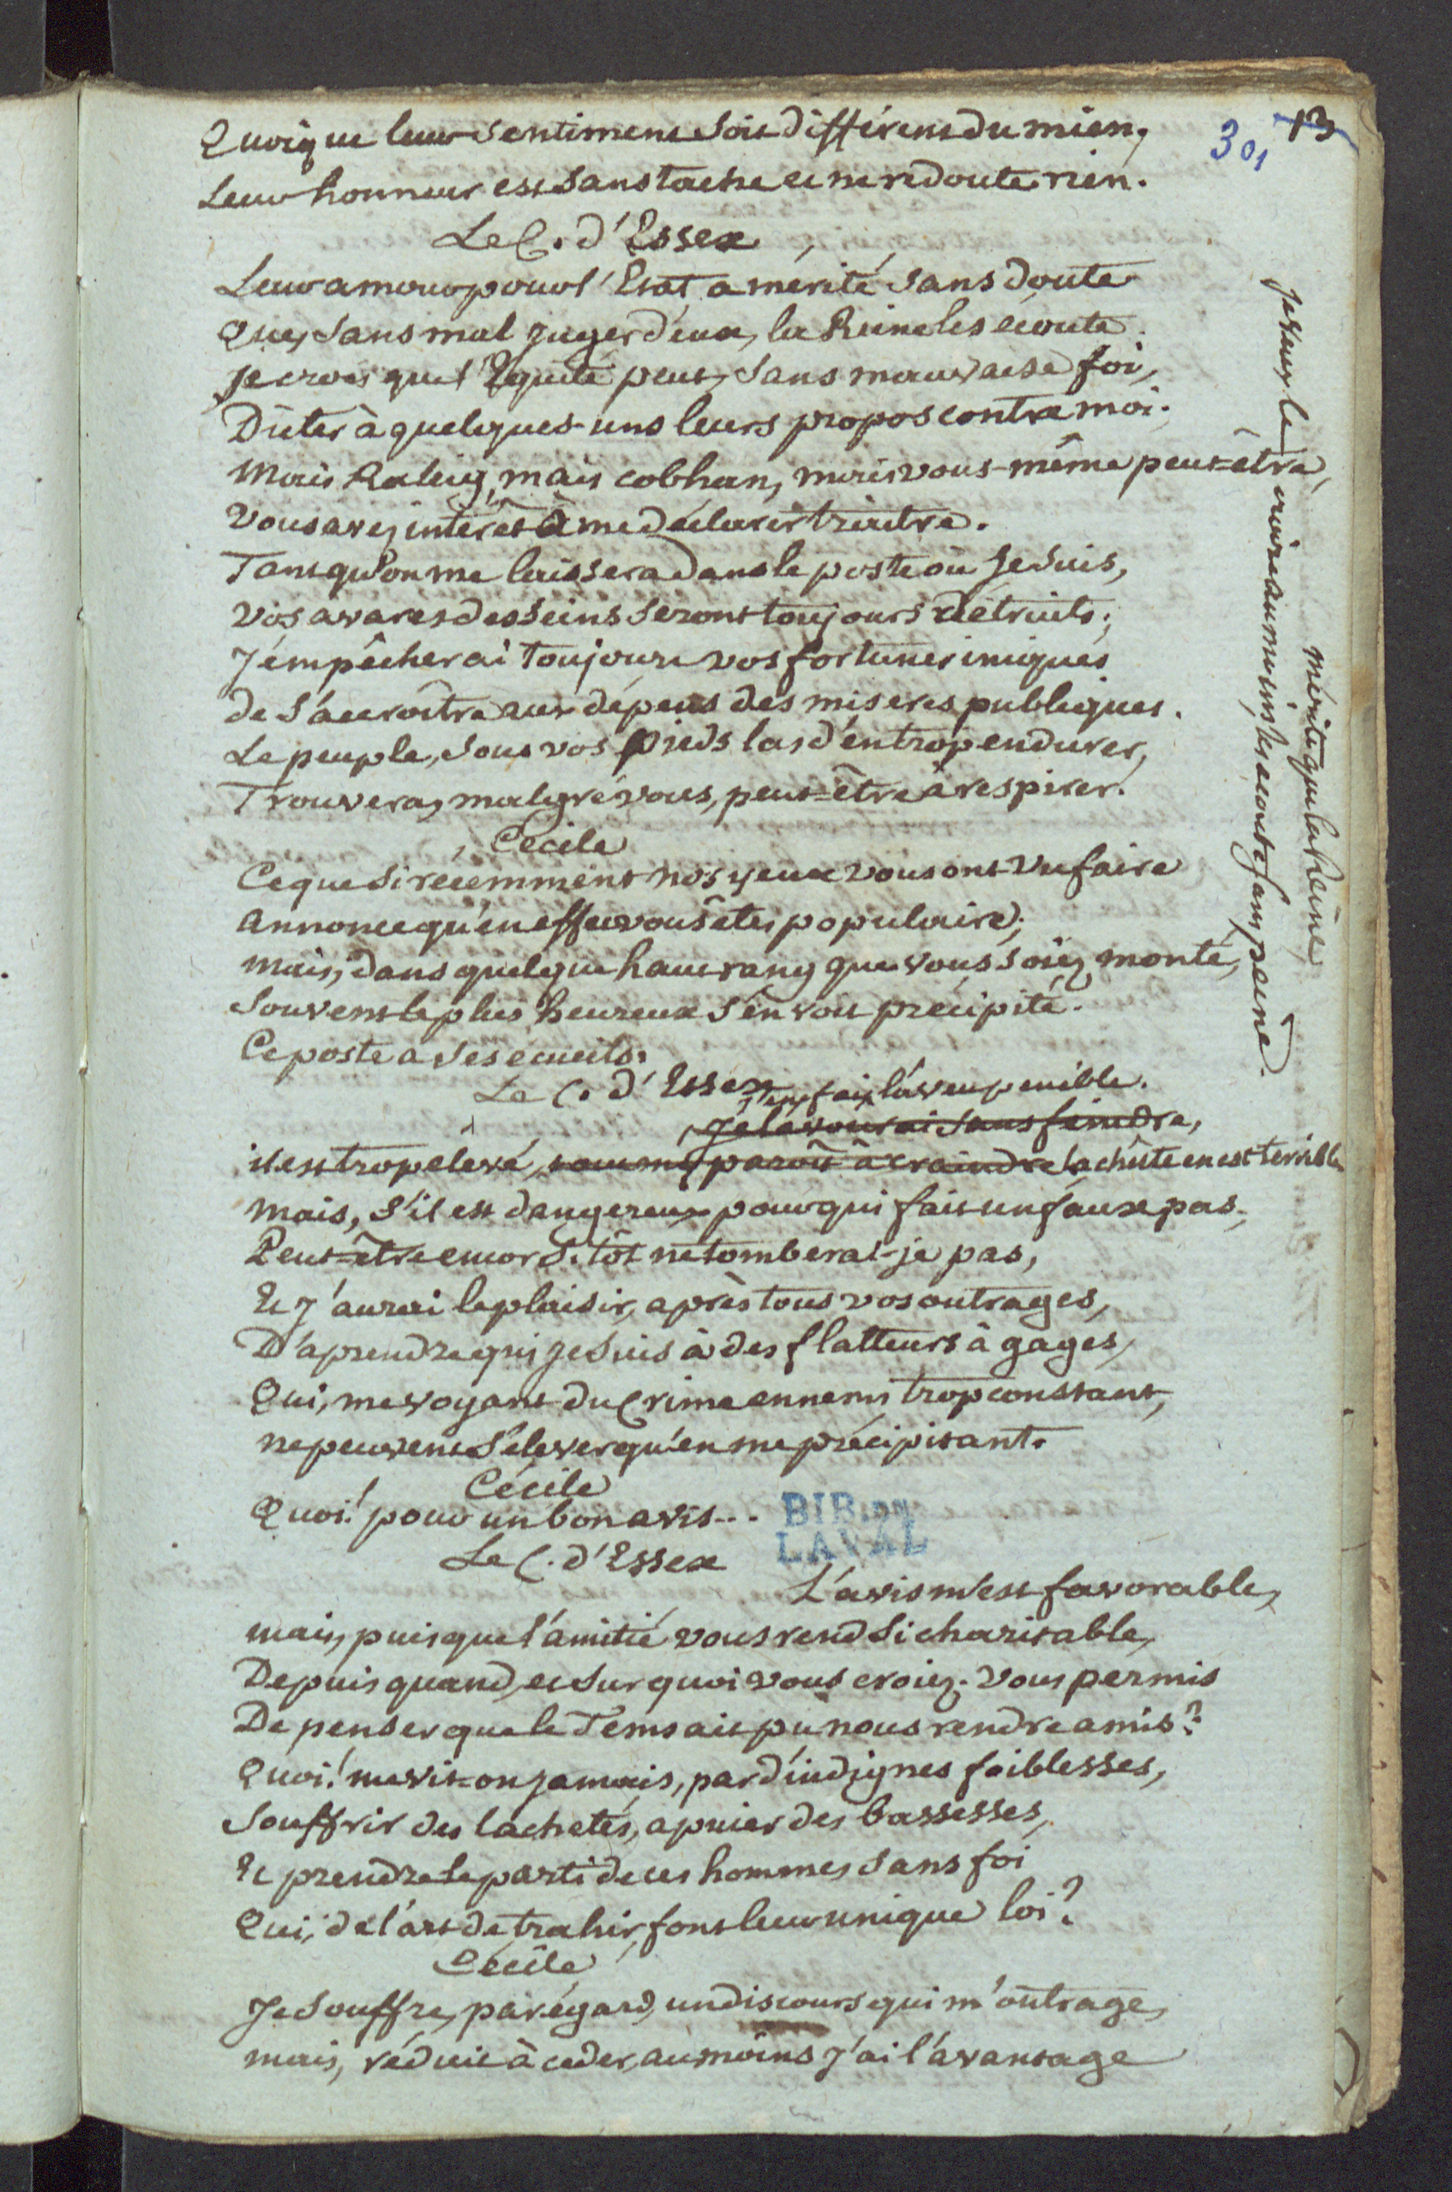 301 13
Quoique leur sentiment soit différent du mien,
Leur honneur est sans tache et ne redoute rien.
Le C. d'Essex
Leur amour pour l'Etat a mérité sans doute
Que, sans mal juger d'eux, la Reine les ecoute.
Je crois que l'Equité peut, sans mauvaise foi,
Dicter à quelques-uns leurs propos contre moi.
Mais Raleig, mais cobhan, mais vous-même peut-être,
Vous avez intérêt à me déclarer traitre.
Tant qu'on me laissera dans le poste où Je suis,
Vos avares desseins seront toujours détruits;
J'empêcherai toujours vos fortunes iniques
de s'accroître aux dépens des miseres publiques.
Le peuple, sous vos pieds las d'en trop endurer,
Trouvera, malgré vous, peut-être à respirer.
Cécile
Ce que si récemment nos yeux vous ont vu faire
annonce qu'en effet vous êtes populaire;
mais, dans quelque haut rang que vous soiez monté,
Souvent le plus heureux s'en voit précipité.
Ce poste a ses ecueils.
Le C. d'Essex
J'en fais l'aveu penible.
Je l'avourai sans feindre,
il est trop elevé, tout m'y paroît à craindre la chûte en est terrible
mais, s'il est dangereux pour qui fait un faux pas,
Peut-être encor si-tôt ne tomberai-je pas,
Et j'aurai le plaisir, après tous vos outrages,
D'aprendre qui je suis à des flatteurs à gages,
Qui, me voyant du Crime ennemi trop constant,
ne peuvent s'élever qu'en me précipitant.
Cécile
Quoi! pour un bon avis...
BIB. DE
LAVAL
Le C. d'Essex
L'avis m'est favorable,
mais, puisque l'amitié vous rend si charitable,
Depuis quand, et sur quoi vous croiez-vous permis
De penser que le Tems ait pu nous rendre amis?
Quoi! me vit-on jamais, par d'indignes foiblesses,
Souffrir des lachetés, apuier des bassesses,
Et prendre le parti de ces hommes sans foi
Qui, de l'art de trahir, font leur unique loi?
Cécile
Je souffre, par égard, un discours qui m'outrage,
mais, réduit à ceder, au moins j'ai l'avantage
mérite que la Reine
les ecoute sans peine.